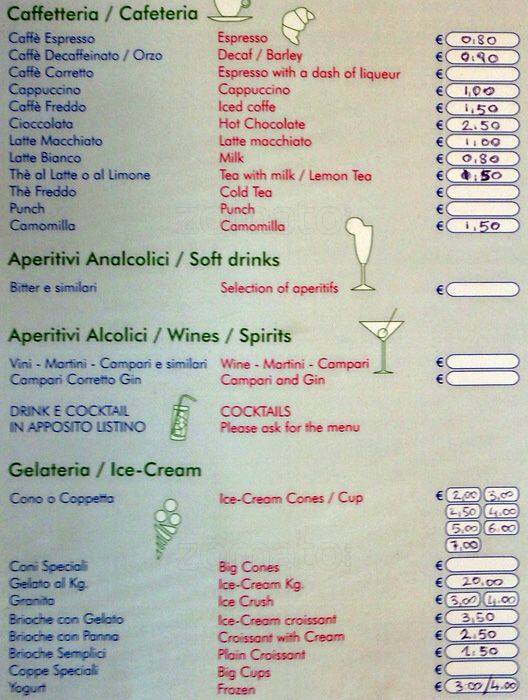 Caffetteria / Cafeteria
Caffè Espresso Espresso € 0.80
Caffè Decaffeinato / Orzo Decaf / Barley € 0.90
Caffè Corretto Espresso with a dash of liqueur €
Cappuccino Cappuccino € 1,00
Caffè Freddo Iced coffe € 1,50
Cioccolata Hot Chocolate € 2.50
Latte Macchiato Latte macchiato € 1.00
Latte Bianco Milk € 0,80
Thè al Latte o al Limone Tea with milk / Lemon Tea € 1.50
Thè Freddo Cold Tea €
Punch Punch €
Camomilla Camomilla € 1,50
Aperitivi Analcolici / Soft drinks
Bitter e similari Selection of aperitifs €
Aperitivi Alcolici / Wines / Spirits
Vini - Martini - Campari e similari Wine - Martini - Campari €
Campari Corretto Gin Campari and Gin €
DRINK E COCKTAIL COCKTAILS
IN APPOSITO LISTINO Please ask for the menu
Gelateria / Ice-Cream
Cono o Coppetta Ice-Cream Cones / Cup € 2,00 3,00
2,50 4.00
5,00 6.00
7,00
Coni Speciali Big Cones €
Gelato al Kg. Ice-Cream Kg. € 20,00
Granita Ice Crush € 3,00 4.00
Brioche con Gelato Ice-Cream croissant € 3,50
Brioche con Panna Croissant with Cream € 2.50
Brioche Semplici Plain Croissant € 1.50
Coppe Speciali Big Cups €
Yogurt Frozen € 3.00/4.00